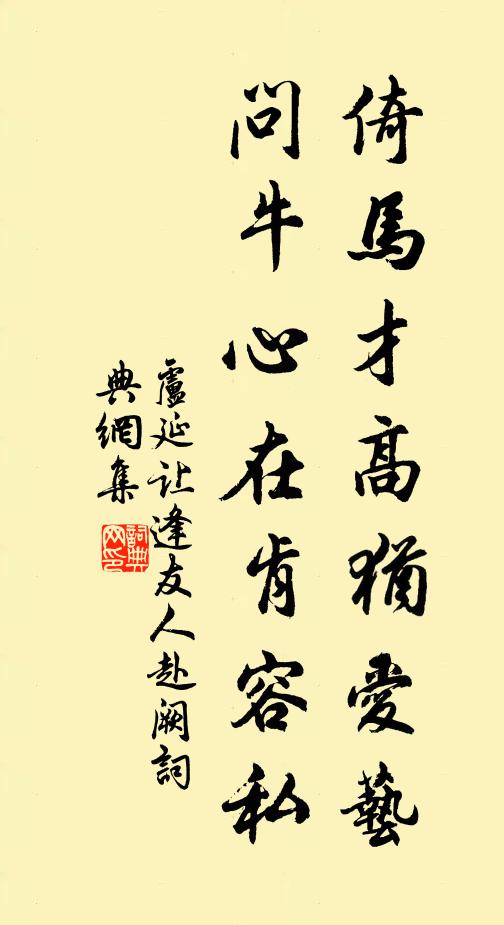 倚馬才高猶愛藝
問牛心在肯容私
盧延让逢友人赴阙詞
典網集
詞典
网印